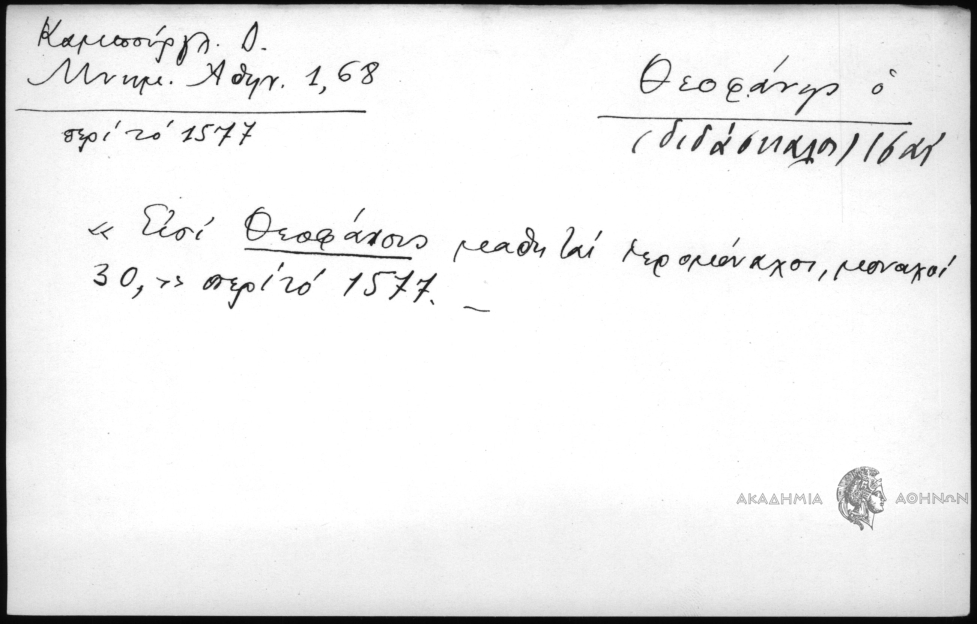 Καμπούργλ. Δ.
Μνημ. Ἀθην. 1, 68
περί τό 1577
Θεοφάνης ὁ
(διδάσκαλος) 16 αἰ
« Εἰσί Θεοφάνους μαθηταί ἱερομόναχοι, μοναχοί
30, » περί τό 1577. –
ΑΚΑΔΗΜΙΑ ΑΘΗΝΩΝ